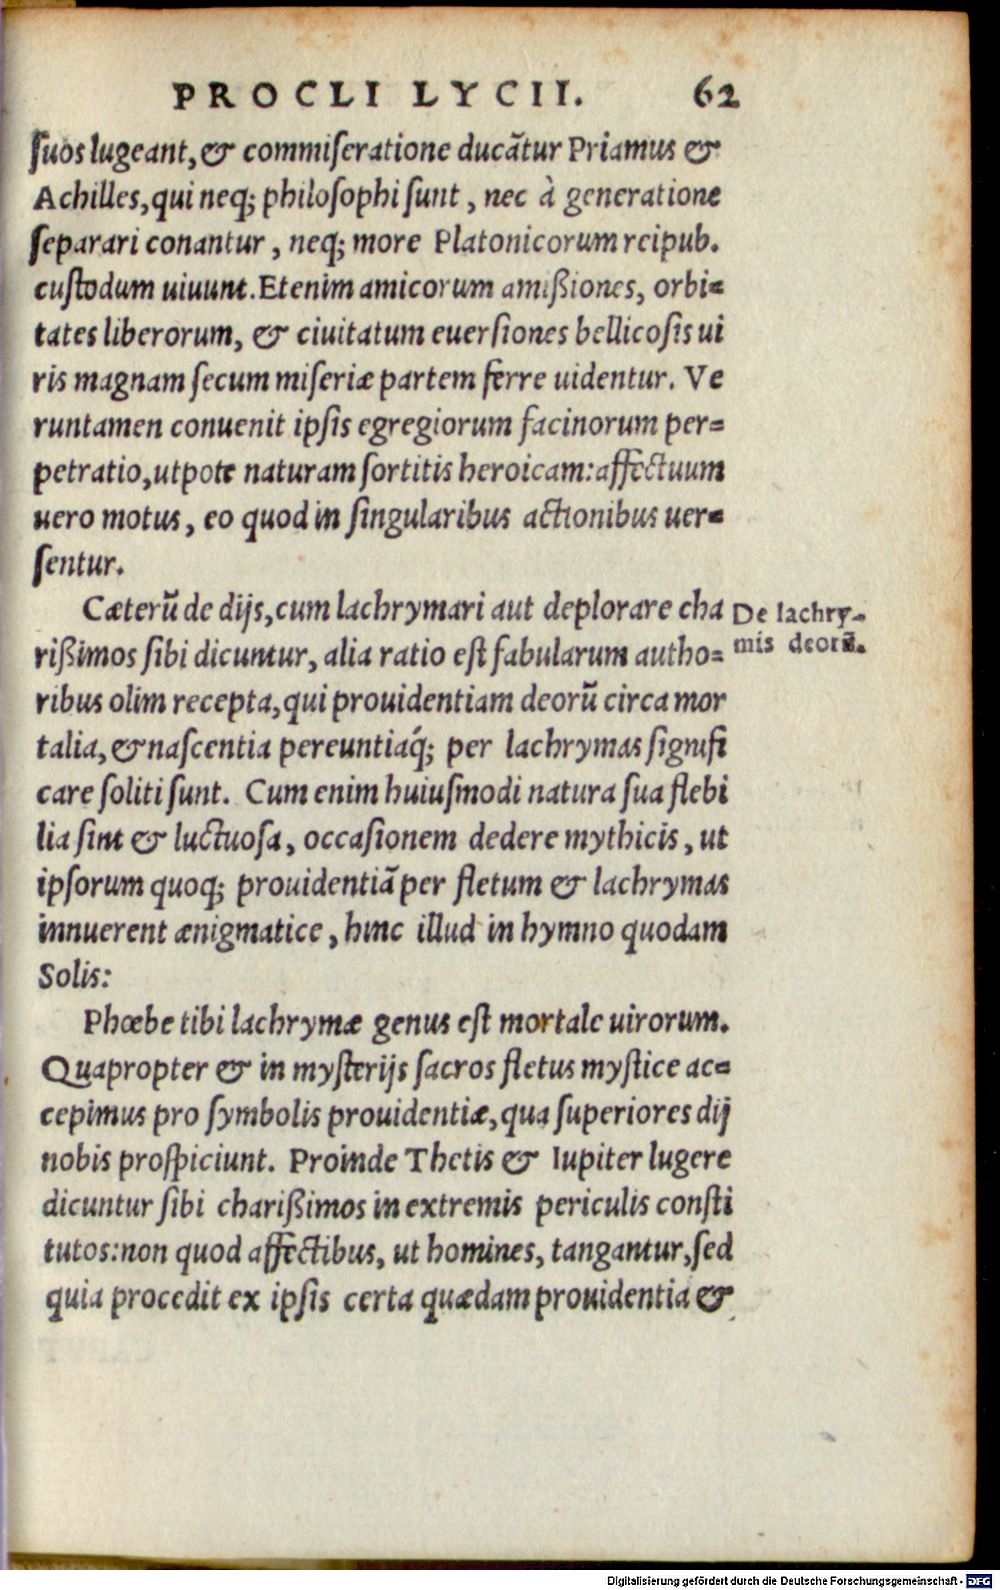 PROCLI LYCII. 62
ſuos lugeant, & commiſeratione ducātur Priamus &
Achilles, qui neq; philoſophi ſunt, nec à generatione
ſeparari conantur, neq; more Platonicorum reipub.
cuſtodum uiuunt. Etenim amicorum amißiones, orbi-
tates liberorum, & ciuitatum euerſiones bellicoſis ui
ris magnam ſecum miſeriæ partem ferre uidentur. Ve
runtamen conuenit ipſis egregiorum facinorum per-
petratio, utpote naturam ſortitis heroicam: affectuum
uero motus, eo quod in ſingularibus actionibus uer-
ſentur.
Cæterū de dijs, cum lachrymari aut deplorare cha
rißimos ſibi dicuntur, alia ratio eſt fabularum autho-
De lachry-
mis deorū.
ribus olim recepta, qui prouidentiam deorū circa mor
talia, & naſcentia pereuntiaq́; per lachrymas ſignifi
care ſoliti ſunt. Cum enim huiuſmodi natura ſua flebi
lia ſint & luctuoſa, occaſionem dedere mythicis, ut
ipſorum quoq; prouidentiā per fletum & lachrymas
innuerent ænigmatice, hinc illud in hymno quodam
Solis:
Phœbe tibi lachrymæ genus eſt mortale uirorum.
Quapropter & in myſterijs ſacros fletus myſtice ac-
cepimus pro ſymbolis prouidentiæ, qua ſuperiores dij
nobis proſpiciunt. Proinde Thetis & Iupiter lugere
dicuntur ſibi charißimos in extremis periculis conſti
tutos: non quod affectibus, ut homines, tangantur, ſed
quia procedit ex ipſis certa quædam prouidentia &
Digitalisierung gefördert durch die Deutsche Forschungsgemeinschaft - DFG